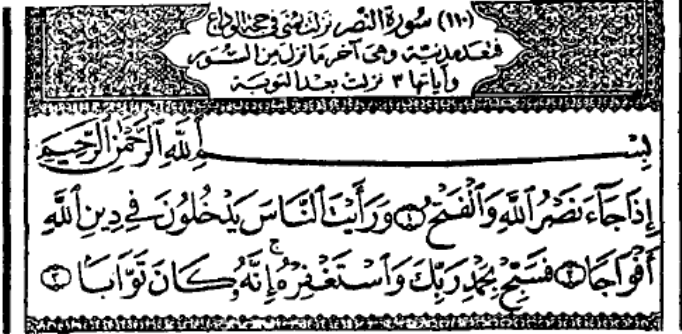 (١١٠) سورة النصر نزلت بمنى في حجة الوداع
فتعد مدنية وهى آخر ما نزل من السور
وآياتها ٣ نزلت بعد التوبة
بِسْمِ ٱللَّهِ ٱلرَّحْمَٰنِ ٱلرَّحِيمِ
إِذَا جَآءَ نَصْرُ ٱللَّهِ وَٱلْفَتْحُ ١ وَرَأَيْتَ ٱلنَّاسَ يَدْخُلُونَ فِي دِينِ ٱللَّهِ
أَفْوَاجًا ٢ فَسَبِّحْ بِحَمْدِ رَبِّكَ وَٱسْتَغْفِرْهُ ۚ إِنَّهُۥ كَانَ تَوَّابًا ٣